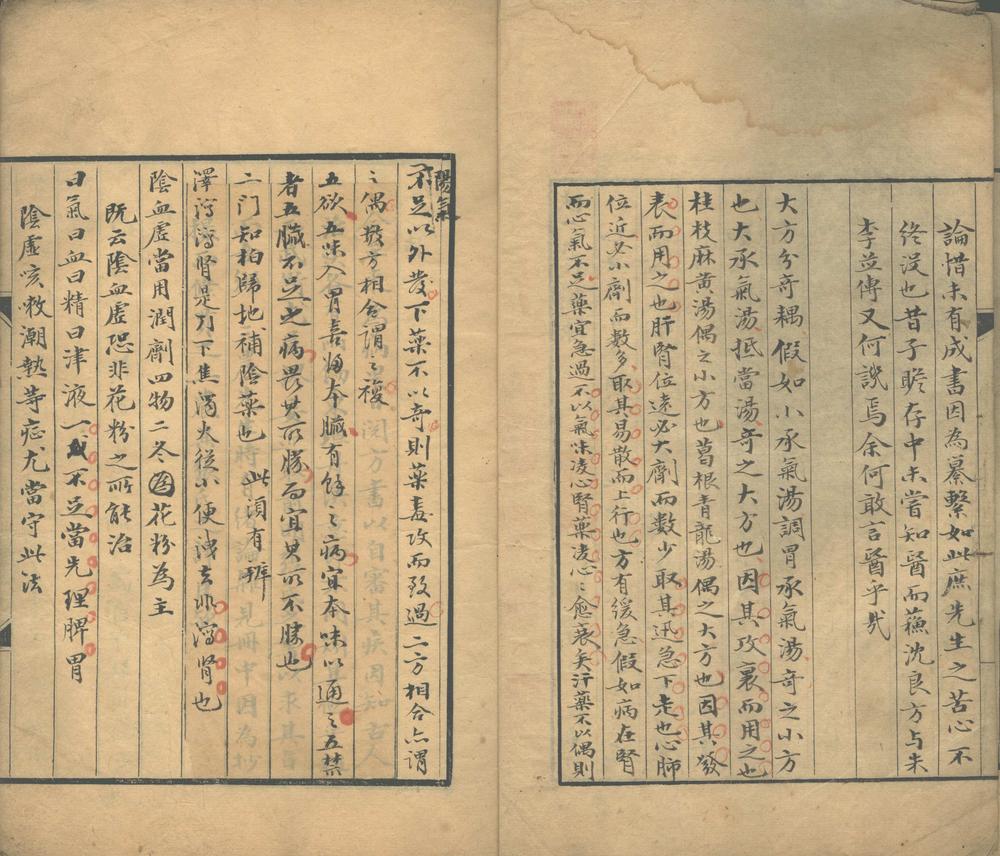 論惜未有成書因為纂繫如此庶先生之苦心不
終没也昔子瞻存中未嘗知醫而蘓沈良方与朱
李並傳又何譏焉余何敢言醫乎哉
大方分竒耦假如小承氣湯調胃承氣湯竒之小方
也大承氣湯抵當湯竒之大方也因其攻裏而用之也
桂枝麻黃湯偶之小方也葛根青龍湯偶之大方也因其發
表而用之也肝腎位遠必大劑而数少取其迅急下走也心肺
位近必小劑而数多取其易散而上行也方有缓急假如病在腎
而心氣不足藥宜急過不以氣味凌心腎藥凌心心愈衰矣汗藥不以偶則
陽氣
不足以外發下藥不以竒則藥毒攻而致過二方相合亦謂
之偶數方相合謂之複
五欲五味入胃喜歸本臟有餘之病宜本味以通之五禁
者五臟不足之病畏其所勝而宜其所不勝也
二門知柏歸地補陰藥也 此須有辨
澤瀉瀉腎是刀下焦濁火從小便洩去非瀉腎也
陰血虛當用潤劑四物二冬花粉為主
既云陰血虛恐非花粉之所能治
曰氣曰血曰精曰津液一或不足當先理脾胃
陰虛咳嗽潮熱等症尤當守此法